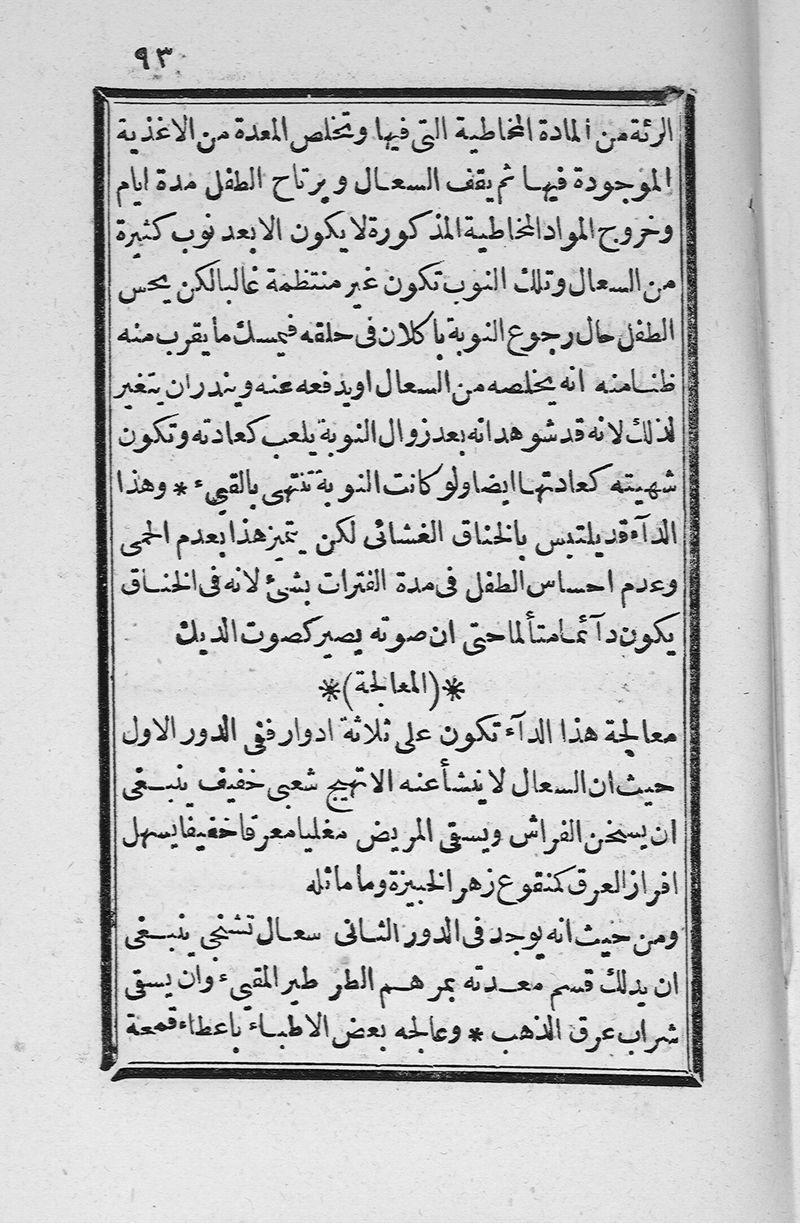 ٩٣
الرئة من المادة المخاطية التى فيها وتخلص المعدة من الاغذية
الموجودة فيها ثم يقف السعال ويرتاح الطفل مدة ايام
وخروج المواد المخاطية المذكورة لا يكون الا بعد نوب كثيرة
من السعال وتلك النوب تكون غير منتظمة غالبا لكن يحس
الطفل حال رجوع النوبة باكلان فى حلقه فيمسك ما يقرب منه
ظنا منه انه يخلصه من السعال او يدفعه عنه ويندر ان يتغير
لذلك لانه قد شوهد انه بعد زوال النوبة يلعب كعادته وتكون
شهيته كعادتها ايضا ولو كانت النوبة تنتهى بالقيء * وهذا
الدآء قد يلتبس بالخناق الغشائى لكن يتميز هذا بعدم الحمى
وعدم احساس الطفل فى مدة الفترات بشئ لانه فى الخناق
يكون دآئما متألما حتى ان صوته يصير كصوت الديك
*(المعالجة)*
معالجة هذا الدآء تكون على ثلاثة ادوار ففى الدور الاول
حيث ان السعال لا ينشأ عنه الا تهيج شعبى خفيف ينبغى
ان يسخن الفراش ويسقى المريض مغليا معرقا خفيفا يسهل
افراز العرق كمنقوع زهر الخبيزة وما ماثله
ومن حيث انه يوجد فى الدور الثانى سعال تشنجى ينبغى
ان يدلك قسم معدته بمرهم الطرطير المقيء وان يسقى
شراب عرق الذهب * وعالجه بعض الاطباء باعطاء قمعة